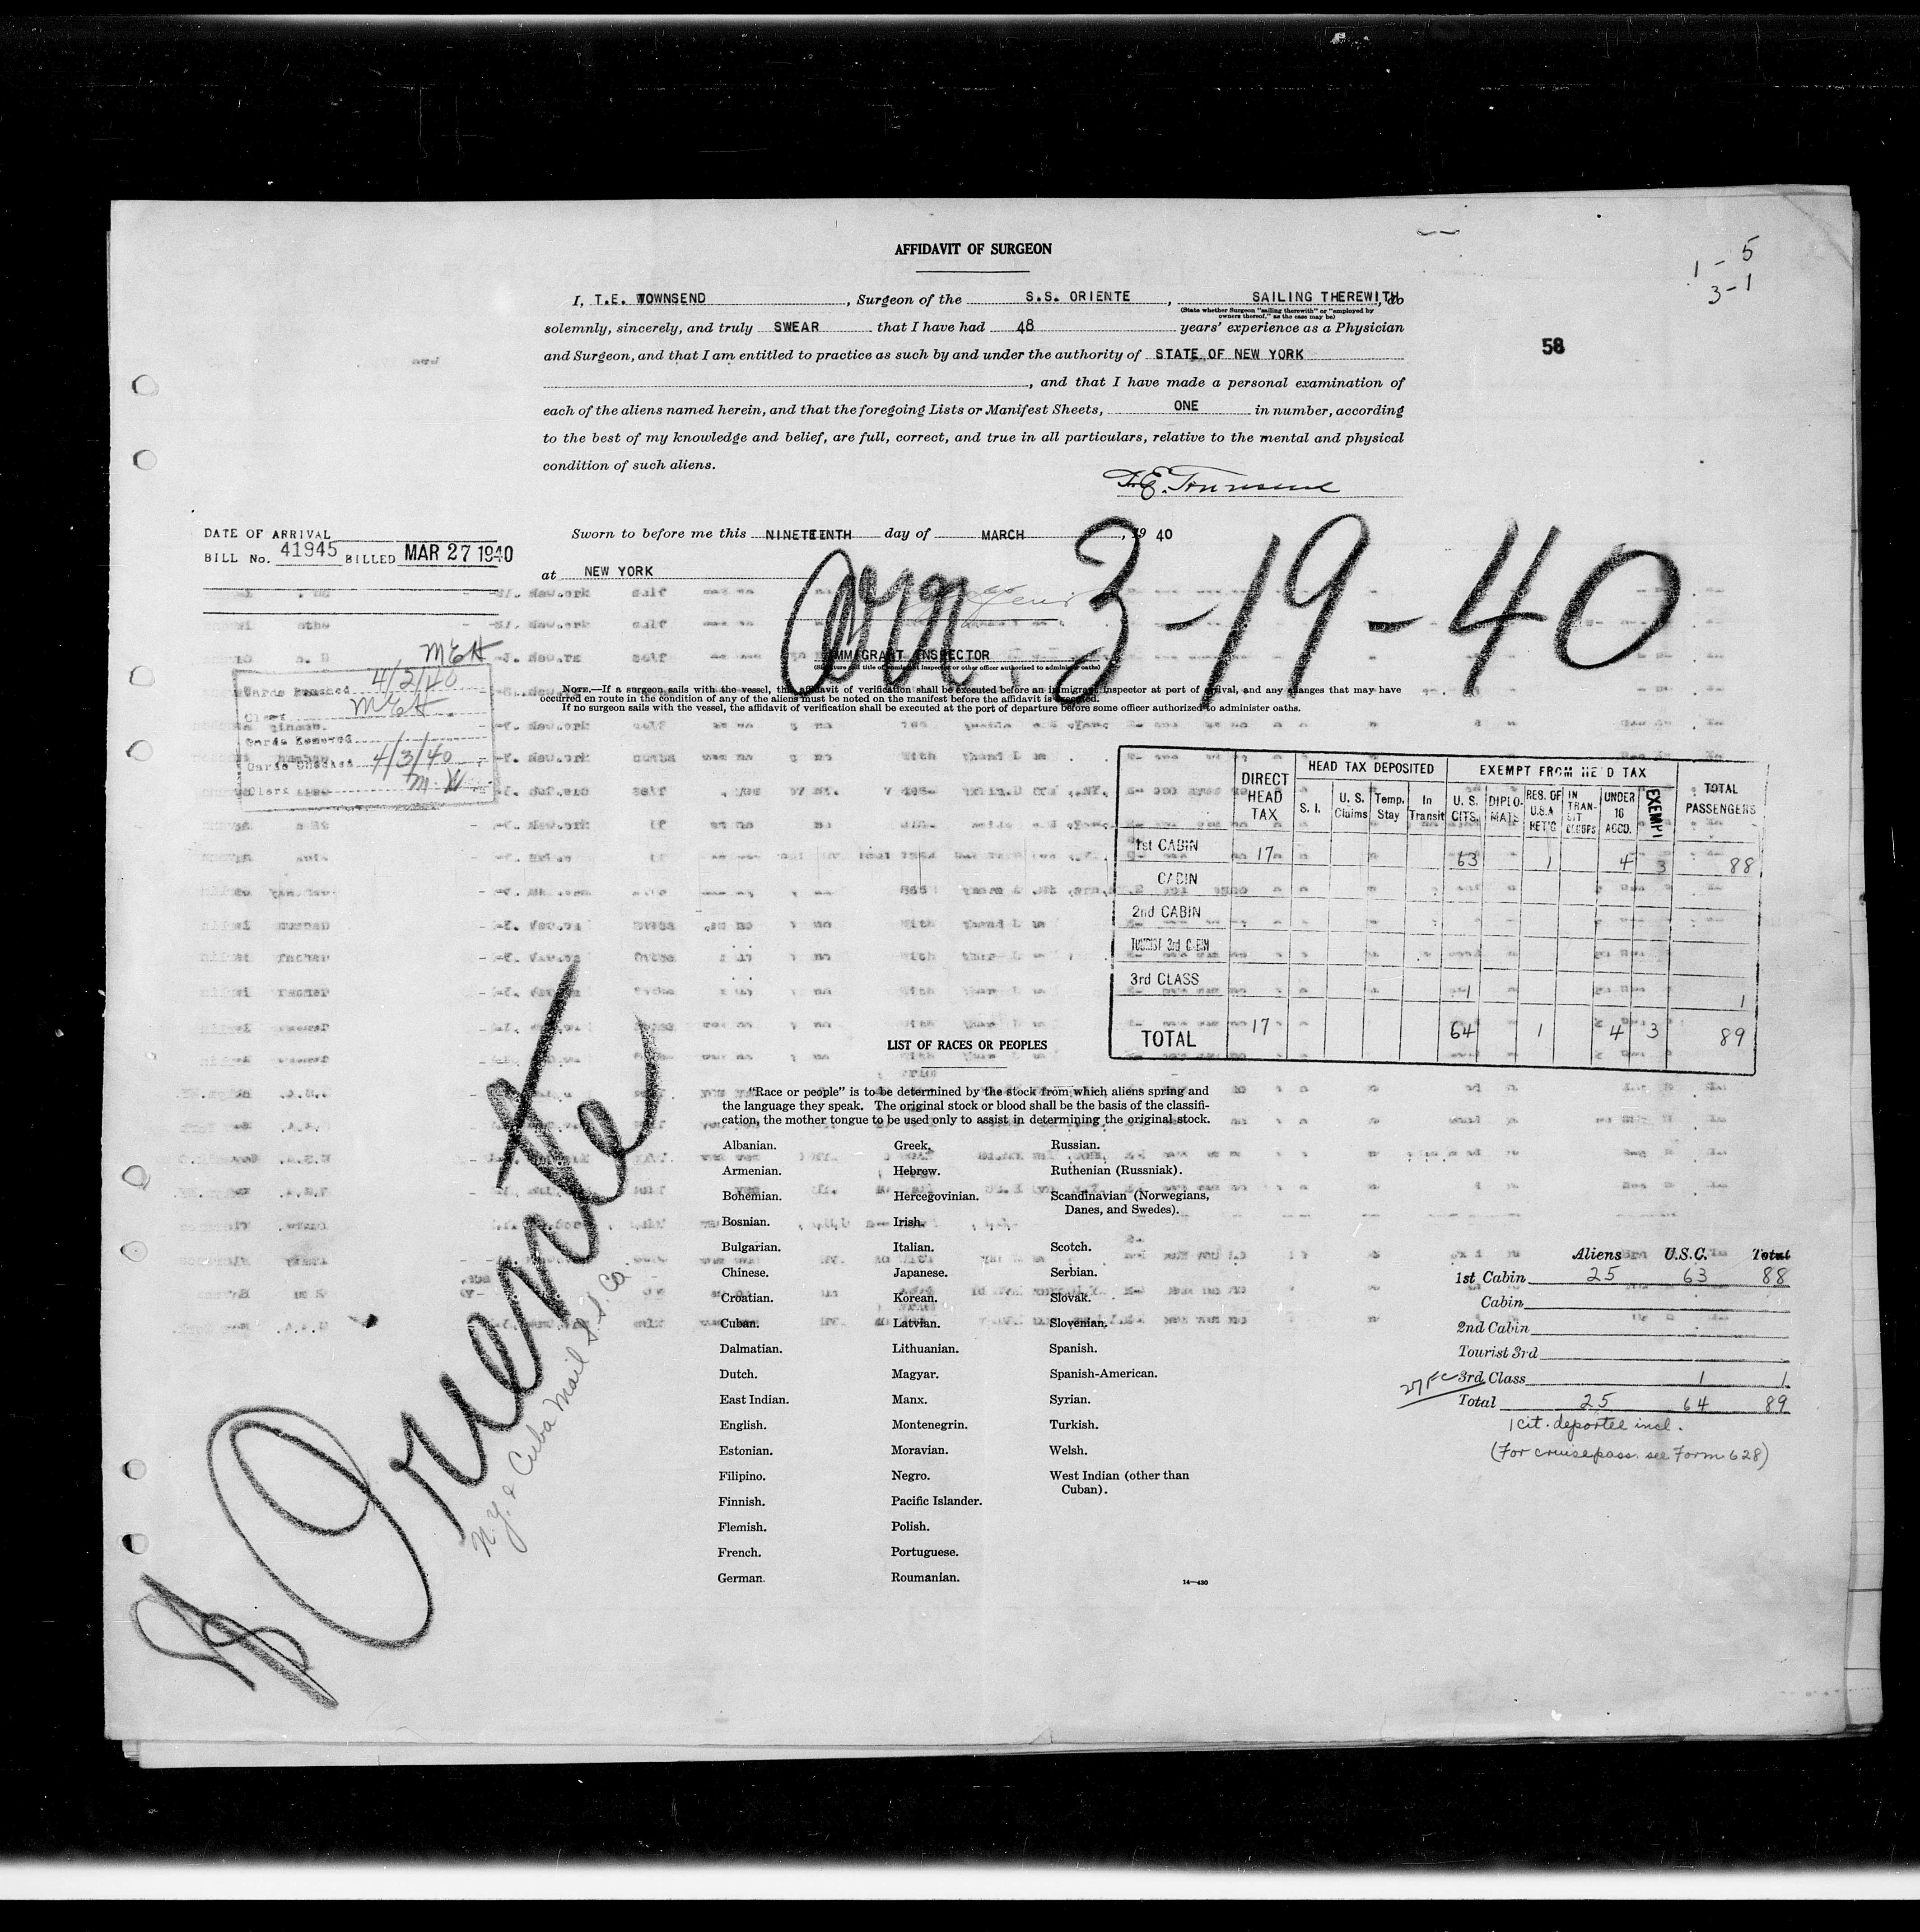 AFFIDAVIT OF SURGEON
1 - 5
3 - 1
I, T.E. TOWNSEND, Surgeon of the S.S. ORIENTE, SAILING THEREWITH, do
(State whether Surgeon "sailing therewith" or "employed by
owners thereof," as the case may be)
solemnly, sincerely, and truly SWEAR that I have had 48 years' experience as a Physician
and Surgeon, and that I am entitled to practice as such by and under the authority of STATE OF NEW YORK
58
, and that I have made a personal examination of
each of the aliens named herein, and that the foregoing Lists or Manifest Sheets, ONE in number, according
to the best of my knowledge and belief, are full, correct, and true in all particulars, relative to the mental and physical
condition of such aliens.
T.E. Townsend
DATE OF ARRIVAL
BILL No. 41945 BILLED MAR 27 1940
Sworn to before me this NINETEENTH day of MARCH, 19 40
at NEW YORK
Arr. 3-19-40
IMMIGRANT INSPECTOR
(Signature and title of immigrant inspector or other officer authorized to administer oaths)
NOTE.—If a surgeon sails with the vessel, this affidavit of verification shall be executed before an immigrant inspector at port of arrival, and any changes that may have
occurred en route in the condition of any of the aliens must be noted on the manifest before the affidavit is executed.
If no surgeon sails with the vessel, the affidavit of verification shall be executed at the port of departure before some officer authorized to administer oaths.
MEH
4/2/40
Clerk MEH
Cards Removed
Cards Checked 4/3/40
Clerk M.W.
DIRECT HEAD TAX
HEAD TAX DEPOSITED
EXEMPT FROM HEAD TAX
TOTAL PASSENGERS
S. I. U. S. Claims Temp. Stay In Transit U. S. CITS. DIPLOMATS RES. OF U.S.A. RET'G IN TRANSIT UNDER 16 ACCD. EXEMPT
1st CABIN 17 63 1 4 3 88
CABIN
2nd CABIN
TOURIST 3rd CABIN
3rd CLASS 1 1
TOTAL 17 64 1 4 3 89
LIST OF RACES OR PEOPLES
"Race or people" is to be determined by the stock from which aliens spring and
the language they speak. The original stock or blood shall be the basis of the classifi-
cation, the mother tongue to be used only to assist in determining the original stock.
Albanian. Greek. Russian.
Armenian. Hebrew. Ruthenian (Russniak).
Bohemian. Hercegovinian. Scandinavian (Norwegians,
Danes, and Swedes).
Bosnian. Irish.
Bulgarian. Italian. Scotch.
Chinese. Japanese. Serbian.
Croatian. Korean. Slovak.
Cuban. Latvian. Slovenian.
Dalmatian. Lithuanian. Spanish.
Dutch. Magyar. Spanish-American.
East Indian. Manx. Syrian.
English. Montenegrin. Turkish.
Estonian. Moravian. Welsh.
Filipino. Negro. West Indian (other than
Cuban).
Finnish. Pacific Islander.
Flemish. Polish.
French. Portuguese.
German. Roumanian.
14—430
Aliens U.S.C. Total
1st Cabin 25 63 88
Cabin
2nd Cabin
Tourist 3rd
3rd Class 1 1
Total 25 64 89
1 cit. deportee incl.
(For cruise pass. see Form 628)
Oriente
N.Y. & Cuba Mail S.S. Co.